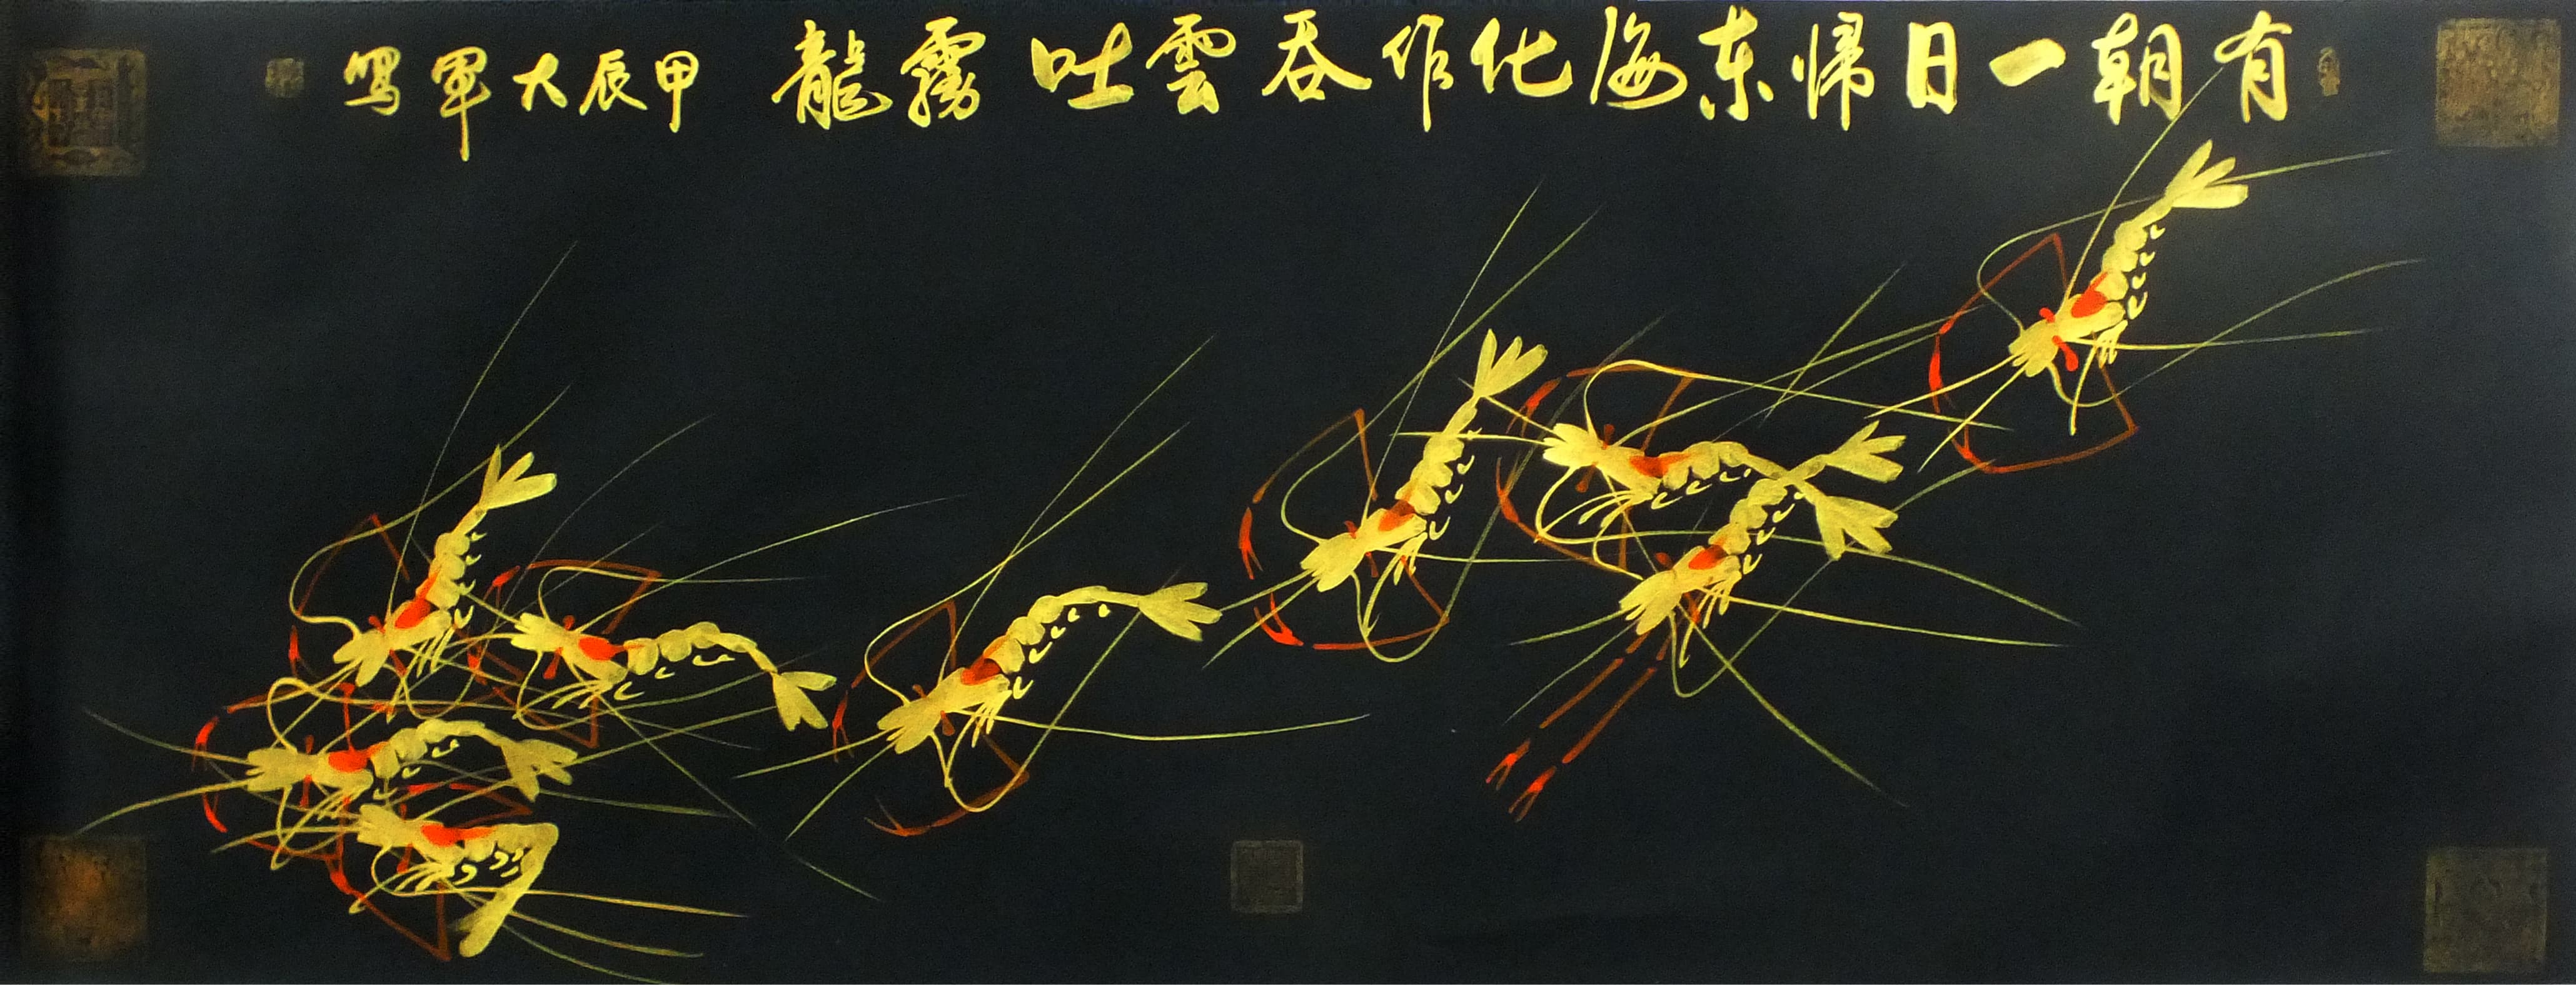 有朝一日帰东海化作吞雲吐霧龍 甲辰大軍写